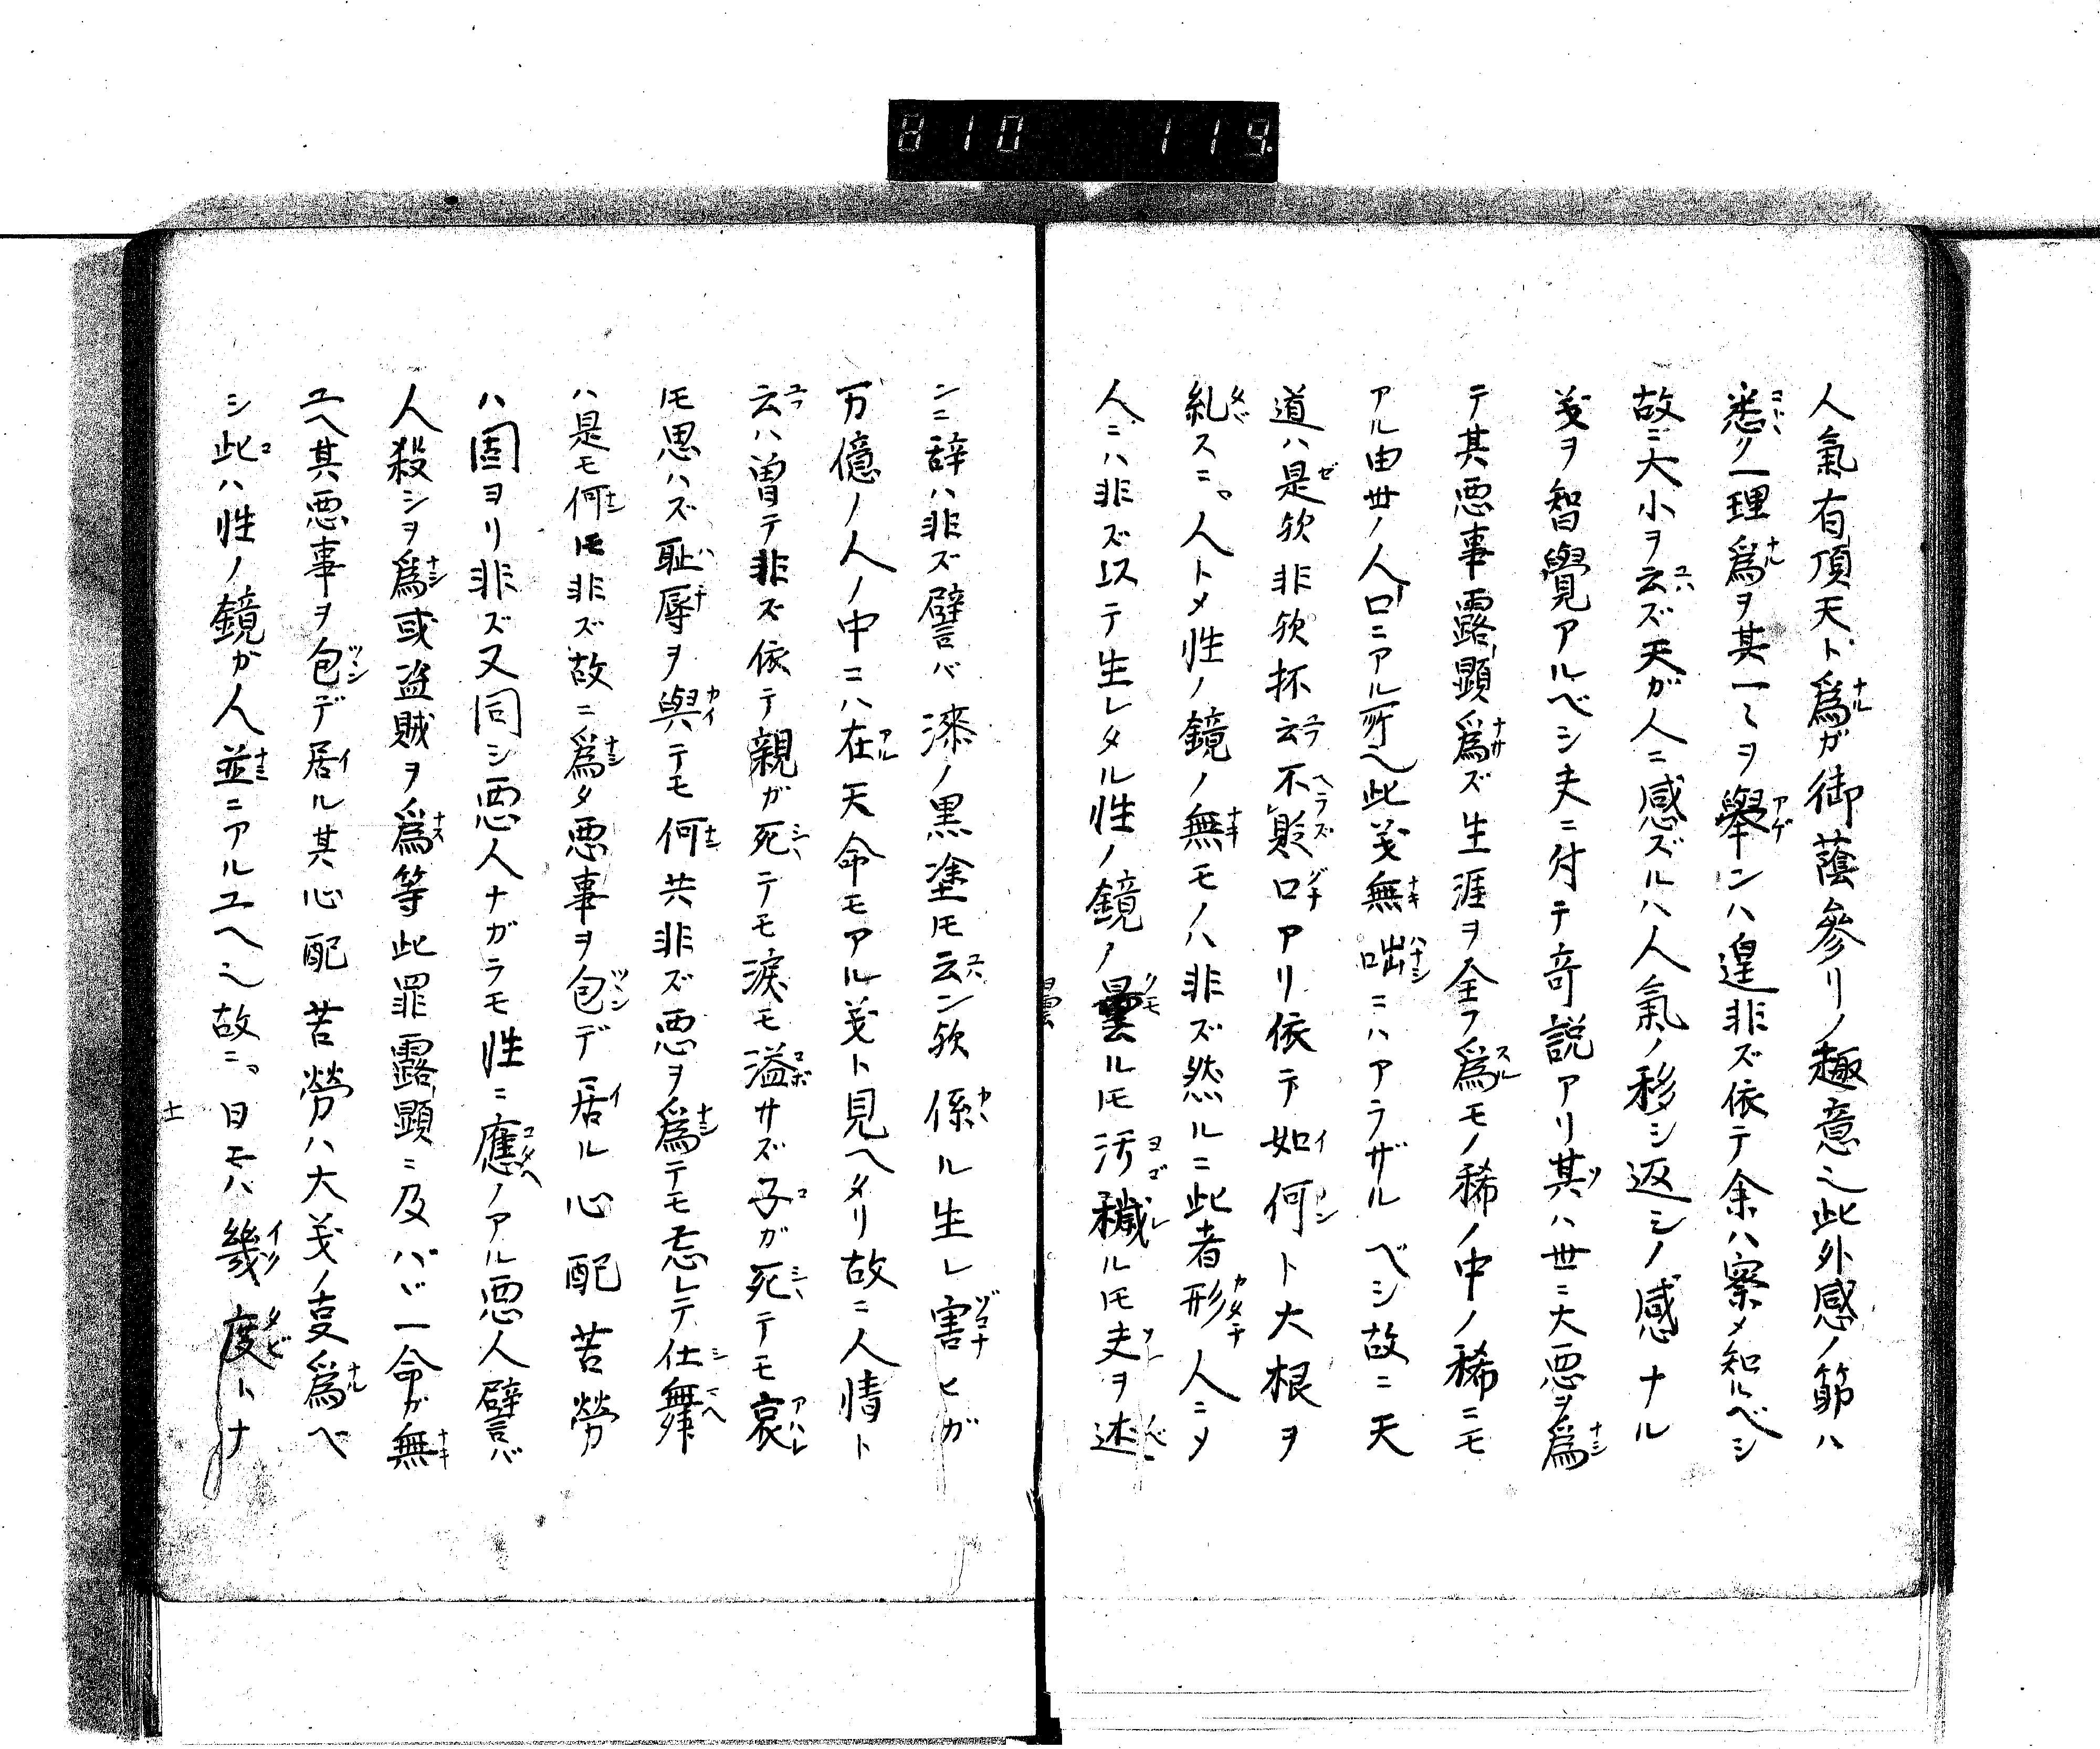 810 119.
人氣有頂天ト爲ガ御蔭參リノ趣意也此外感ノ節ハ
悉ク一理爲ヲ其一々ヲ擧ンハ遑非ズ依テ余ハ察メ知ルベシ
故ニ大小ヲ云ズ天ガ人ニ感ズルハ人氣ノ移シ返シノ感ナル
㐧ヲ智覺アルベシ夫ニ付テ奇説アリ其ハ世ニ大悪ヲ爲
テ其悪事露顯爲ズ生涯ヲ全フ爲モノ稀ノ中ノ稀ニモ
アル由世ノ人口ニアル所ヘ此義無咄ニハアラザルベシ故ニ天
道ハ是欤非欤抔云不貶口アリ依テ如何ト大根ヲ
糺スニ人トメ性ノ鏡ノ無モノハ非ズ然ルニ此者形人ニメ
人ニハ非ズ以テ生レタル性ノ鏡ノ曇ルモ汚穢ルモ夫ヲ述
曇
ンニ辞ハ非ズ譬バ漆ノ黒塗モ云ン欤係ル生レ害ヒガ
万億ノ人ノ中ニハ在天命モアル義ト見ヘタリ故ニ人情ト
云ハ曽テ非ズ依テ親ガ死テモ涙モ溢サズ子ガ死テモ哀
トモ思ハズ恥辱ヲ與テモ何共非ズ悪ヲ爲テモ忘レテ仕舞
ハ是モ何トモ非ズ故ニ爲タ悪事ヲ包デ居ル心配苦勞
ハ固ヨリ非ズ又同シ悪人ナガラモ性ニ應ノアル悪人譬バ
人殺シヲ爲或盗賊ヲ爲等此罪露顯ニ及ババ一命ガ無
ユヘ其悪事ヲ包デ居ル其心配苦勞ハ大義ノ㕝爲ベ
シ此ハ性ノ鏡ガ人並ニアルユヘ也故ニ日モハ幾度トナ
土